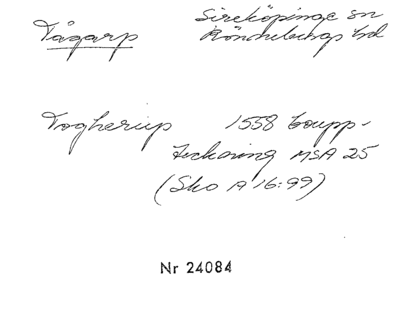 Tågarp Sireköpinge sn
Rönnebergs hd
Togherup 1558 Coupp-
teckning MSA 25
(Sko A 16:99)
Nr 24084